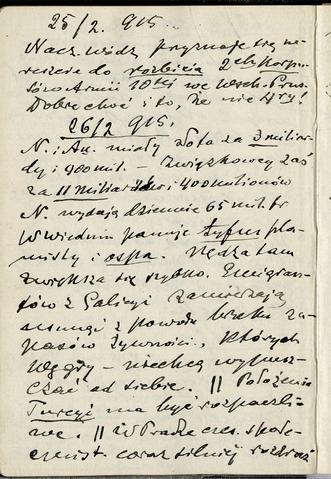 25/2. 915.
Nacz. wódz przyznaje się na-
reszcie do rozbicia 2ch korpu-
sów Armii 10tej we Wsch. Prus.
Dobre choć i to, że nie 4ry!
26/2 915.
N. i Au. miały złota za 3 miliar-
dy i 900 mil. – Związkowcy zaś
za 11 miliardów i 400 milionów
N. wydają dziennie 65 mil. fr
W Wiedniu panuje tyfus pla-
misty i ospa. Nędza tam
zwiększa się szybko. Emigran-
tów z Galicyi zamierzają
usunąć z powodu braku za-
pasów żywności, których
Węgry – niechcą wypusz-
czać od siebie. || Położenie
Turcyi ma być rozpaczli-
we. || W Pradze czes. społe-
coraz silniej